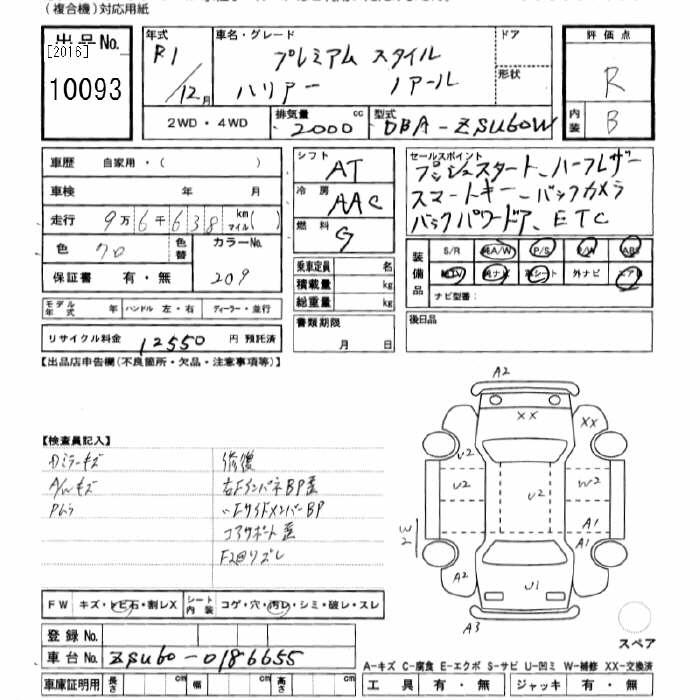 (複合機)対応用紙
出品No.
[2016]
10093
年式
R1/12月
車名・グレード
プレミアム スタイル
ハリアー ノアール
ドア
形状
評価点
R
内装
B
2WD・4WD
排気量
2000
cc
型式
DBA-ZSU60W
車歴 自家用・( )
車検 年 月
走行 9万6千638 km マイル( )
色 クロ
色替
カラーNo.
209
保証書 有・無
モデル年式 年 ハンドル 左・右 ディーラー・並行
リサイクル料金 12550 円 預託済
シフト
AT
冷房
AAC
燃料
G
乗車定員 名
積載量 kg
総重量 kg
書類期限
月 日
セールスポイント
プッシュスタート、ハーフレザー
スマートキー、バックカメラ
バックパワードア、ETC
装備品
S/R 純A/W P/S P/W ABS
純TV 純ナビ 革シート 外ナビ エアB
ナビ型番:
後日品
【出品店申告欄(不良箇所・欠品・注意事項等)】
【検査員記入】
Dミラーキズ
A/Wキズ
修復
右Fインパネ BP歪
〃FサイドメンバーBP
コアサポート歪
A2
XX
XX
U2
U2
U2
W2
W2
A1
A1
A2
U1
A3
スペア
FW キズ・トビ石・割レX シート内装 コゲ・穴・汚レ・シミ・破レ・スレ
登録No.
車台No. ZSU60-0186655
車庫証明用 長さ cm 幅 cm 高さ cm
A-キズ C-腐食 E-エクボ S-サビ U-凹ミ W-補修 XX-交換済
工具 有・無 ジャッキ 有・無